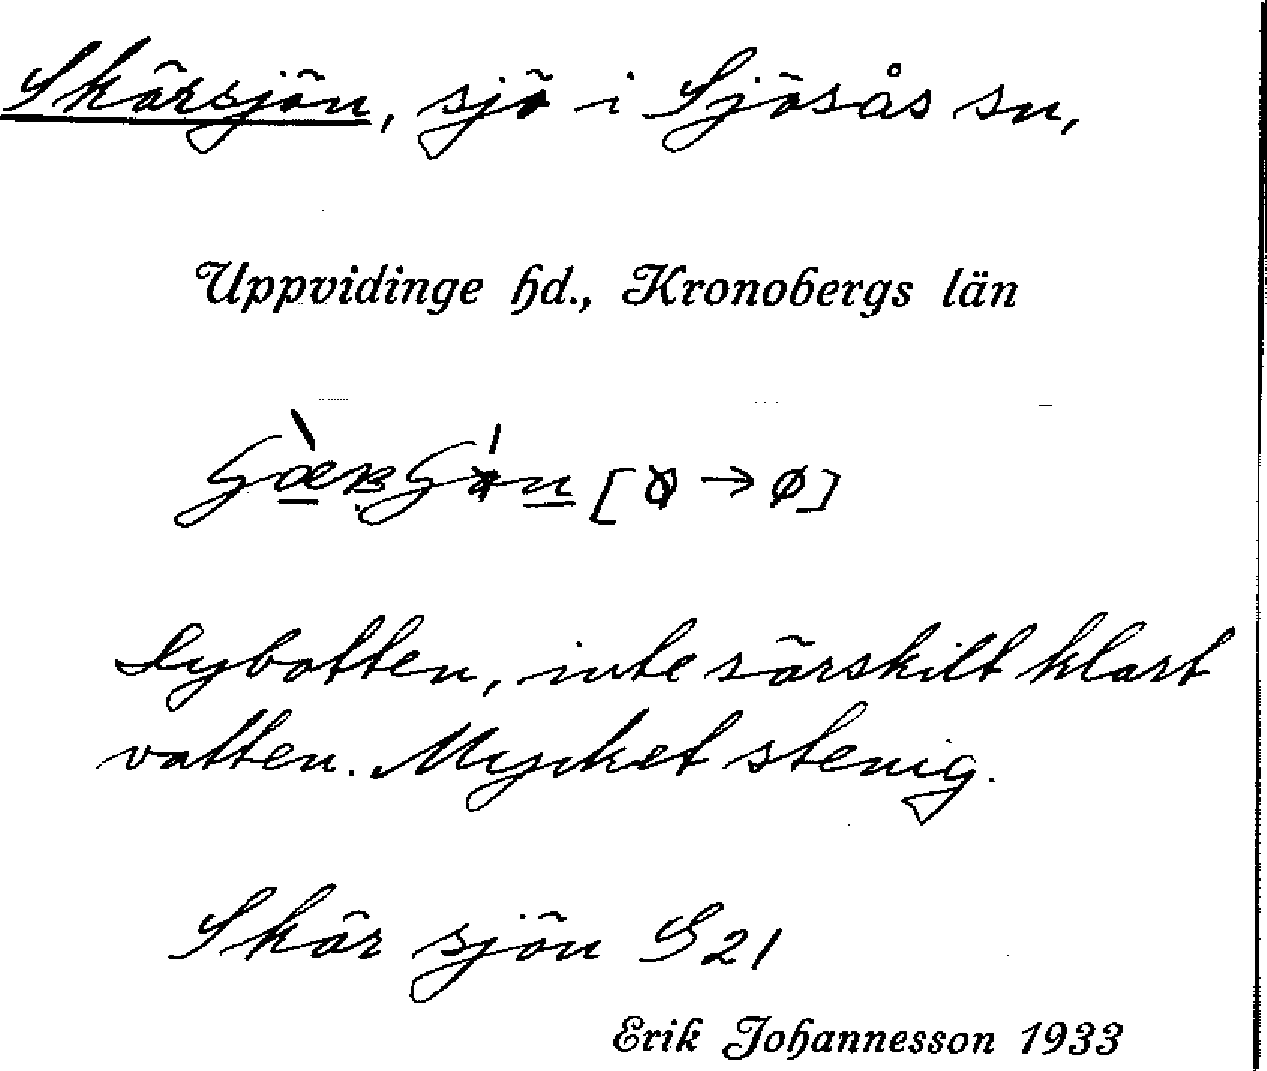 Skärsjön, sjö i Sjösås sn,
Uppvidinge hd., Kronobergs län
[ → ø]
Dybotten, inte särskilt klart
vatten. Mycket stenig.
Skär sjön G21
Erik Johannesson 1933